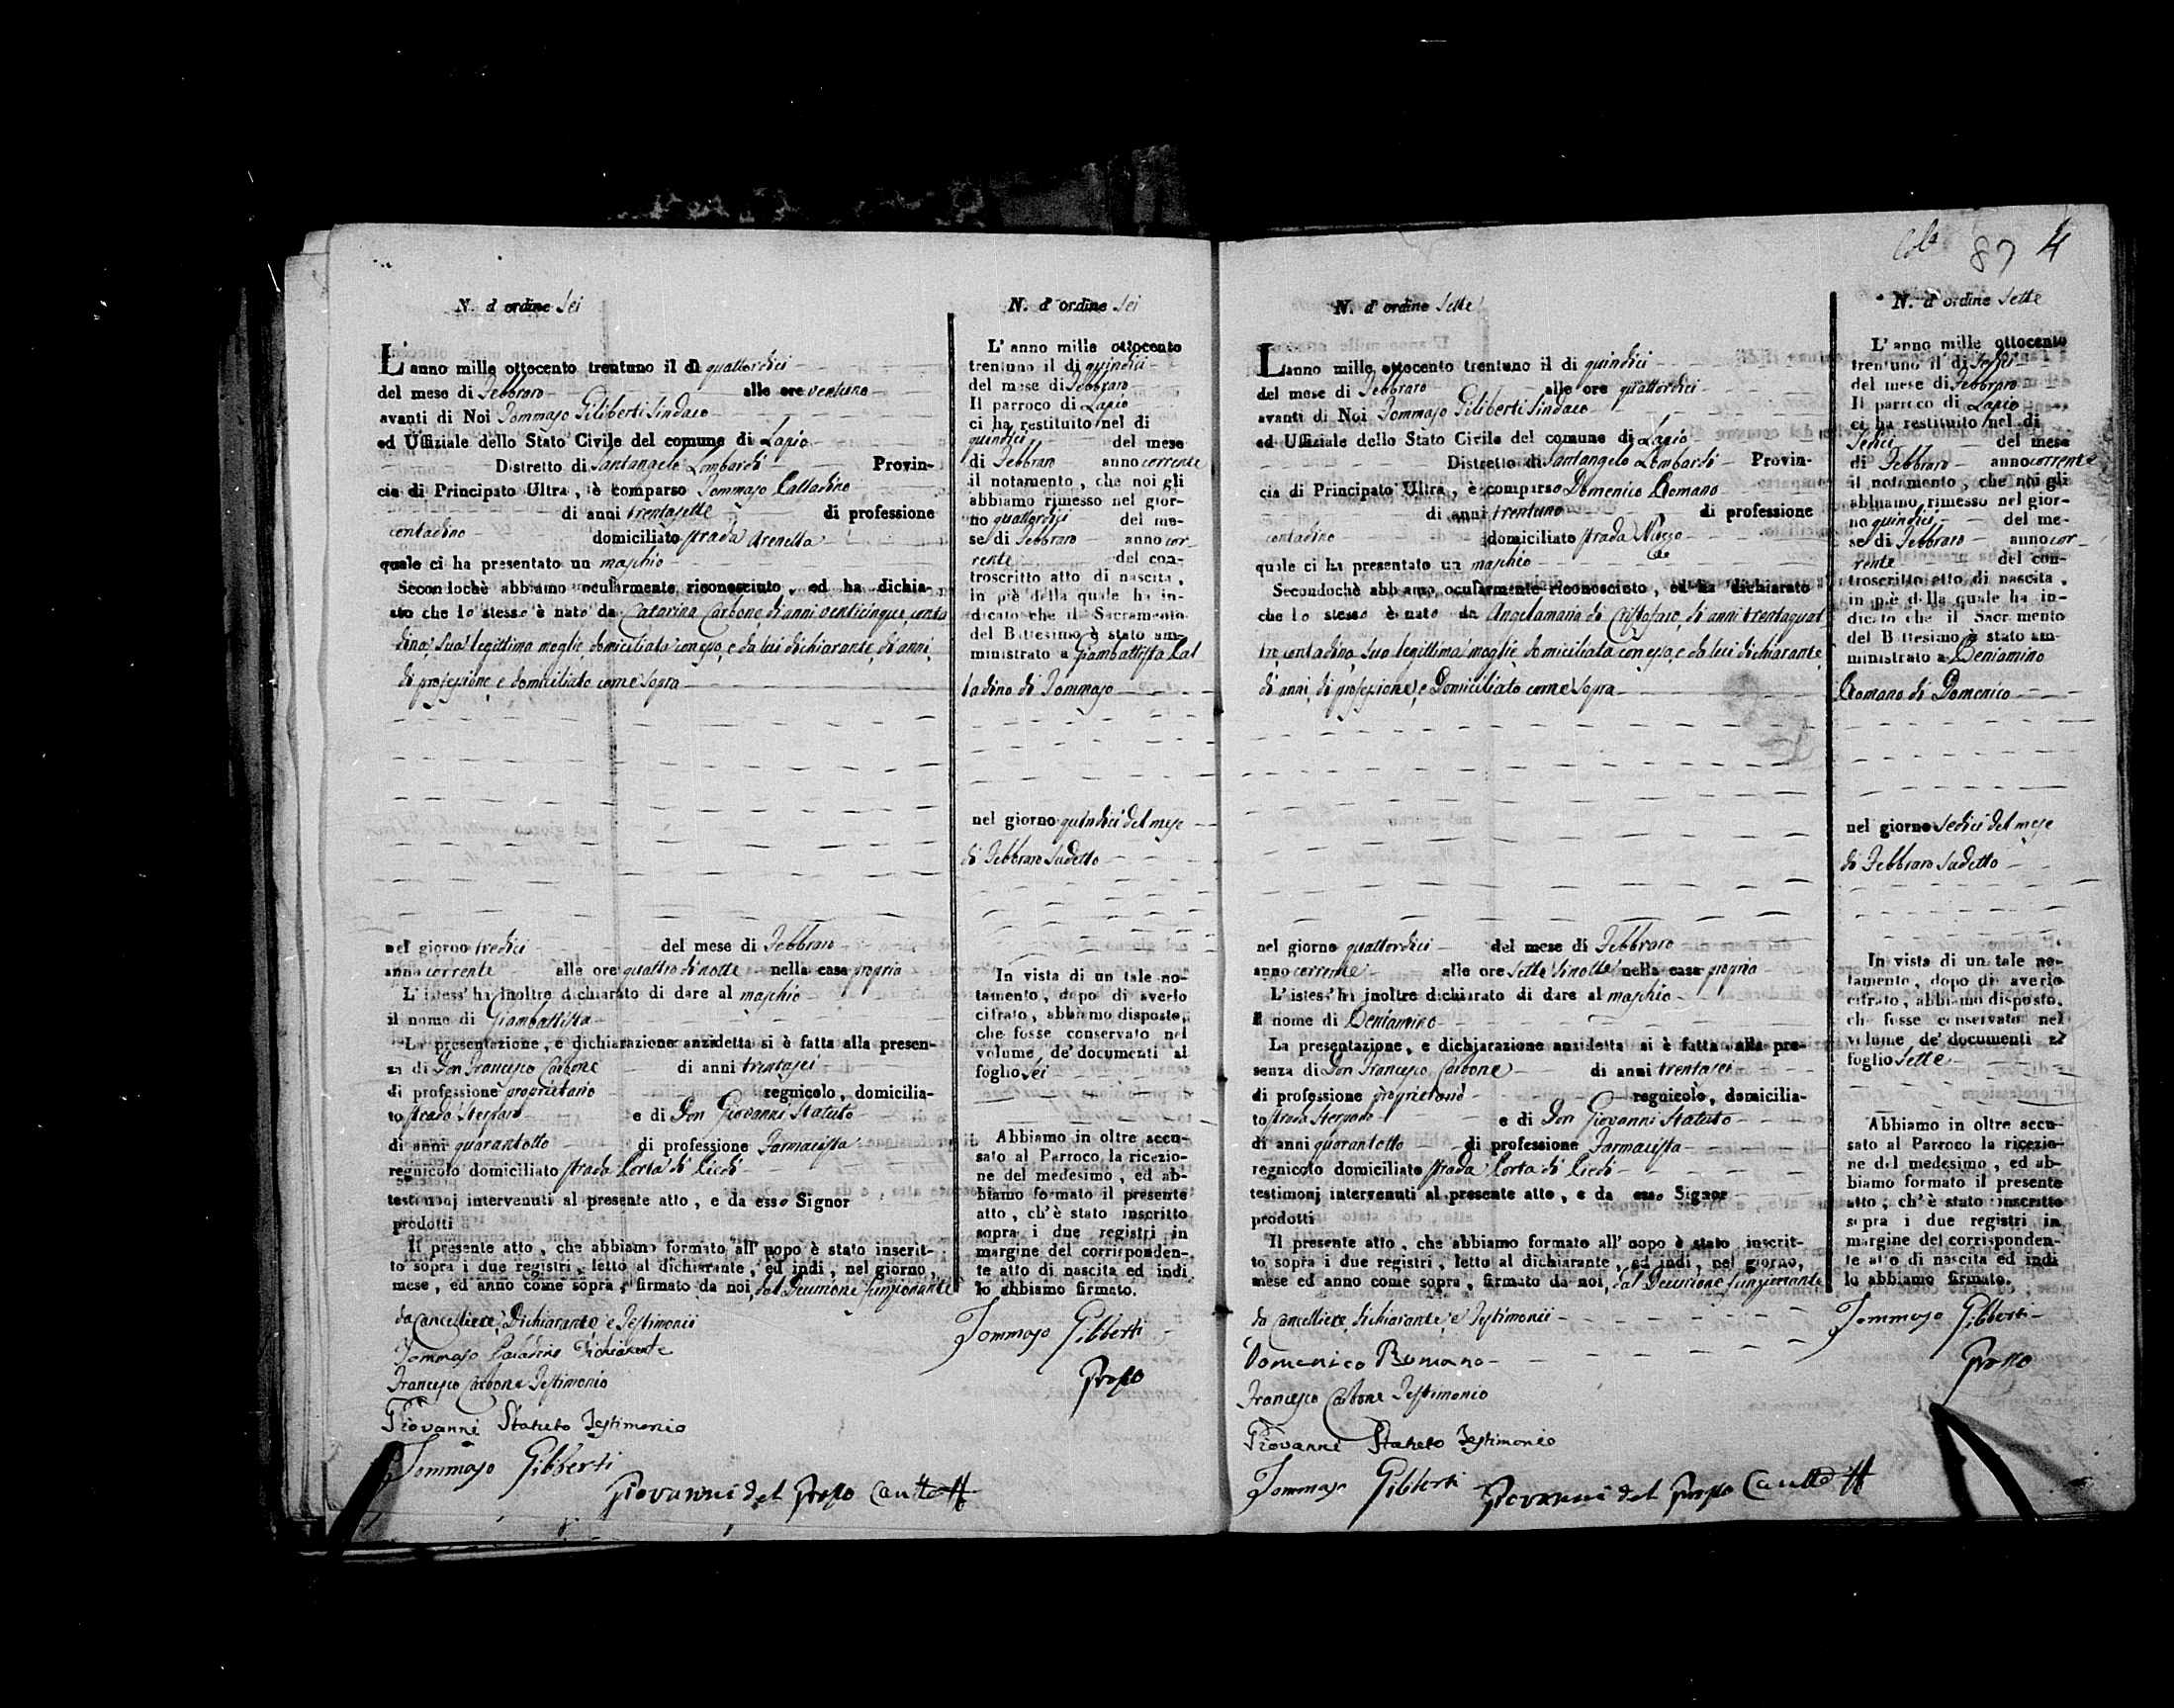 N. d'ordine Sei
L'anno mille ottocento trentuno il dì quattordici
del mese di Febbraro alle ore ventuno
avanti di Noi Tommaso Giliberti Sindaco
ed Uffiziale dello Stato Civile del comune di Lapio
Distretto di Santangelo Lombardi Provin-
cia di Principato Ultra, è comparso Tommaso Calladino
di anni trentasette di professione
contadino domiciliato strada Arenella
quale ci ha presentato un maschio
Secondochè abbiamo ocularmente riconosciuto, ed ha dichia-
ato che lo stesso è nato da Catarina Carbone, di anni venticinque, conta
dina, sua legittima moglie, domiciliata con esso, e da lui dichiarante, di anni,
di professione, e domiciliato come sopra
nel giorno tredici del mese di Febbraro
anno corrente alle ore quattro di notte nella casa propria
L'istess' ha inoltre dichiarato di dare al maschio
il nome di Giambattista
La presentazione, e dichiarazione anzidetta si è fatta alla presen-
za di Don Francesco Carbone di anni trentasei
di professione proprietario regnicolo, domicilia-
to strada e di Don Giovanni Statuto
di anni quarantotto di professione Farmacista
regnicolo domiciliato strada Porta di
testimonj intervenuti al presente atto, e da esso Signor
prodotti
Il presente atto, che abbiamo formato all' uopo è stato inserit-
to sopra i due registri, letto al dichiarante, ed indi, nel giorno,
mese, ed anno come sopra, firmato da noi, dal Decurione funzionante
da Cancelliere, Dichiarante, e Testimonii
Tommaso Dichiarante
Francesco Carbone Testimonio
Giovanni Statuto Testimonio
Tommaso Giliberti
Giovanni del Cautto
N. d'ordine Sei
L'anno mille ottocento
trentuno il dì quindici
del mese di Febbraro
Il parroco di Lapio
ci ha restituito nel di
quindici del mese
di Febbraro anno corrente
il notamento, che noi gli
abbiamo rimesso nel gior-
no quattordici del me-
se di Febbraro anno cor_
rente del con-
troscritto atto di nascita,
in piè della quale ha in-
dicato che il Sacramento
del Battesimo è stato am-
ministrato a Giambattista Cal
ladino di Tommaso
nel giorno quindici del mese
di Febbraro sudetto
In vista di un tale no-
tamento, dopo di averlo
cifrato, abbiamo disposto,
che fosse conservato nel
volume, de' documenti al
foglio sei
Abbiamo in oltre accu-
sato al Parroco la ricezio-
ne del medesimo, ed ab-
biamo formato il presente
atto, ch'è stato inscritto
sopra i due registri in
margine del corrisponden-
te atto di nascita ed indi
lo abbiamo firmato.
Tommaso Giliberti
87 4
N. d'ordine Sette
L'anno mille ottocento trentuno il di quindici
del mese di Febbraro alle ore quattordici
avanti di Noi Tommaso Giliberti Sindaco
ed Uffiziale dello Stato Civile del comune di Lapio
Distretto di Santangelo Lombardi Provin-
cia di Principato Ultra, è comparso Domenico Romano
di anni trentuno di professione
contadino domiciliato strada
quale ci ha presentato un maschio
Secondochè abbiamo ocularmente riconosciuto, ed ha dichiarato
che lo stesso è nato da Angelamaria di Cristofaro, di anni trentaquat
tro, contadina, sua legittima moglie domiciliata con esso, e da lui dichiarante,
di anni, di professione, e Domiciliato come sopra
nel giorno quattordici del mese di Febbraro
anno corrente alle ore sette di notte nella casa propria
L'istess' ha inoltre dichiarato di dare al maschio
il nome di Beniamino
La presentazione, e dichiarazione anzidetta si è fatta alla pre-
senza di Don Francesco Carbone di anni trentasei
di professione proprietario regnicolo, domicilia-
to strada e di Don Giovanni Statuto
di anni quarantotto di professione Farmacista
regnicolo domiciliato strada Porta di
testimonj intervenuti al presente atto, e da esso Signor
prodotti
Il presente atto, che abbiamo formato all' uopo è stato inscrit-
to sopra i due registri, letto al dichiarante, ed indi, nel giorno,
mese ed anno come sopra, firmato da noi, dal Decurione funzionante
da Cancelliere, dichiarante, e Testimonii
Domenico Romano
Francesco Carbone Testimonio
Giovanni Statuto Testimonio
Tommaso Giliberti Giovanni del Cautto
N. d'ordine Sette
L'anno mille ottocento
trentuno il dì Sedici
del mese di Febbraro
Il parroco di Lapio
ci ha restituito nel di
Sedici del mese
di Febbraro anno corrente
il notamento, che noi gli
abbiamo rimesso nel gior-
no quindici del me-
se di Febbraro anno cor_
rente del con-
troscritto atto di nascita,
in piè della quale ha in-
dicato che il Sacramento
del Battesimo è stato am-
ministrato a Beniamino
Romano di Domenico
nel giorno Sedici del mese
di Febbraro sudetto
In vista di un tale no-
tamento, dopo di averlo
cifrato, abbiamo disposto,
che fosse conservato nel
volume de' documenti al
foglio sette
Abbiamo in oltre accu-
sato al Parroco la ricezio-
ne del medesimo, ed ab-
biamo formato il presente
atto, ch'è stato inscritto
sopra i due registri in
margine del corrisponden-
te atto di nascita ed indi
lo abbiamo firmato.
Tommaso Giliberti